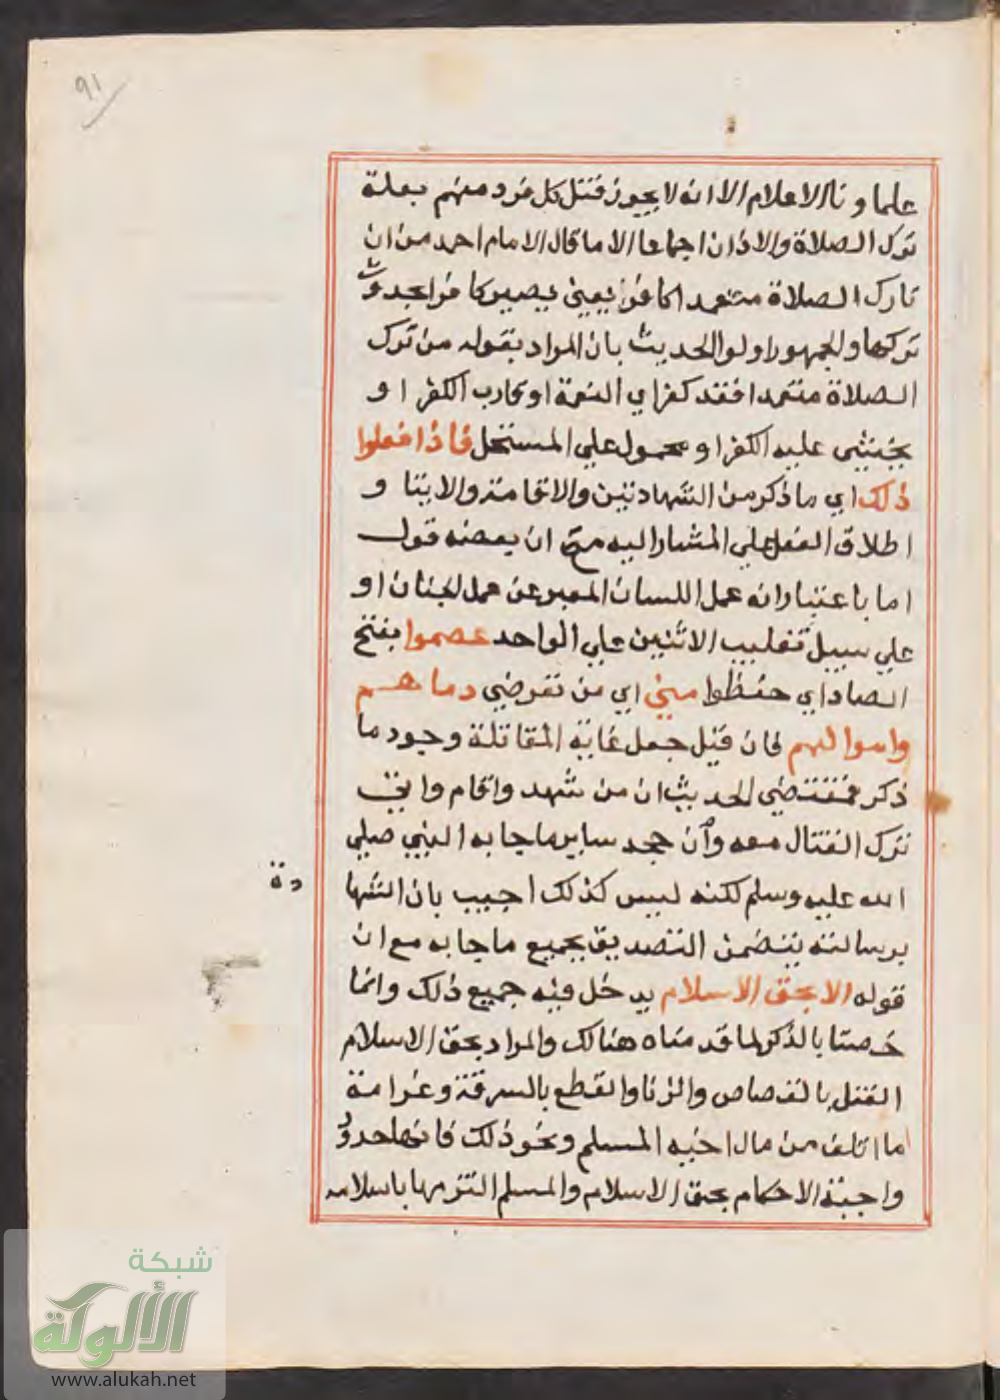 ٩١
علماونا الاعلام الا انه لا يجوز قتل كل فرد منهم بعلة
ترك الصلاة والاذان اجماعا الا ما قال الامام احمد من ان
تارك الصلاة متعمدا كافر يعني يصير كافرا بحدوث
تركها والجمهور اولوا الحديث بان المراد بقوله من ترك
الصلاة متعمدا فقد كفر اي النعمة او قارب الكفر او
يخشى عليه الكفر او محمول علي المستحل فاذا فعلوا
ذلك اي ما ذكر من الشهادتين والاقامة والايتا و
اطلاق الفعل علي المشار اليه مع ان بعضه قول
اما باعتبار انه عمل اللسان المعبر عن عمل الجنان او
علي سبيل تغليب الاثنين علي الواحد عصموا بفتح
الصاد اي حفظوا مني اي من تعرضي دماهم
واموالهم فان قيل جعل غاية المقاتلة وجود ما
ذكر فمقتضي الحديث ان من شهد واقام واتي
ترك القتال معه وان جحد ساير ما جا به النبي صلي
الله عليه وسلم لكنه ليس كذلك اجيب بان الشها
دة
برسالته يتضمن التصديق بجميع ما جا به مع ان
قوله الا بحق الاسلام يدخل فيه جميع ذلك وانما
خصتا بالذكر لما قدمناه هنالك والمراد بحق الاسلام
القتل بالقصاص والزنا والقطع بالسرقة وغرامة
ما اتلف من مال اخيه المسلم ونحو ذلك فانها حدود
واجبة الاحكام بحق الاسلام والمسلم التزمها باسلامه
شبكة
الألوكة
www.alukah.net